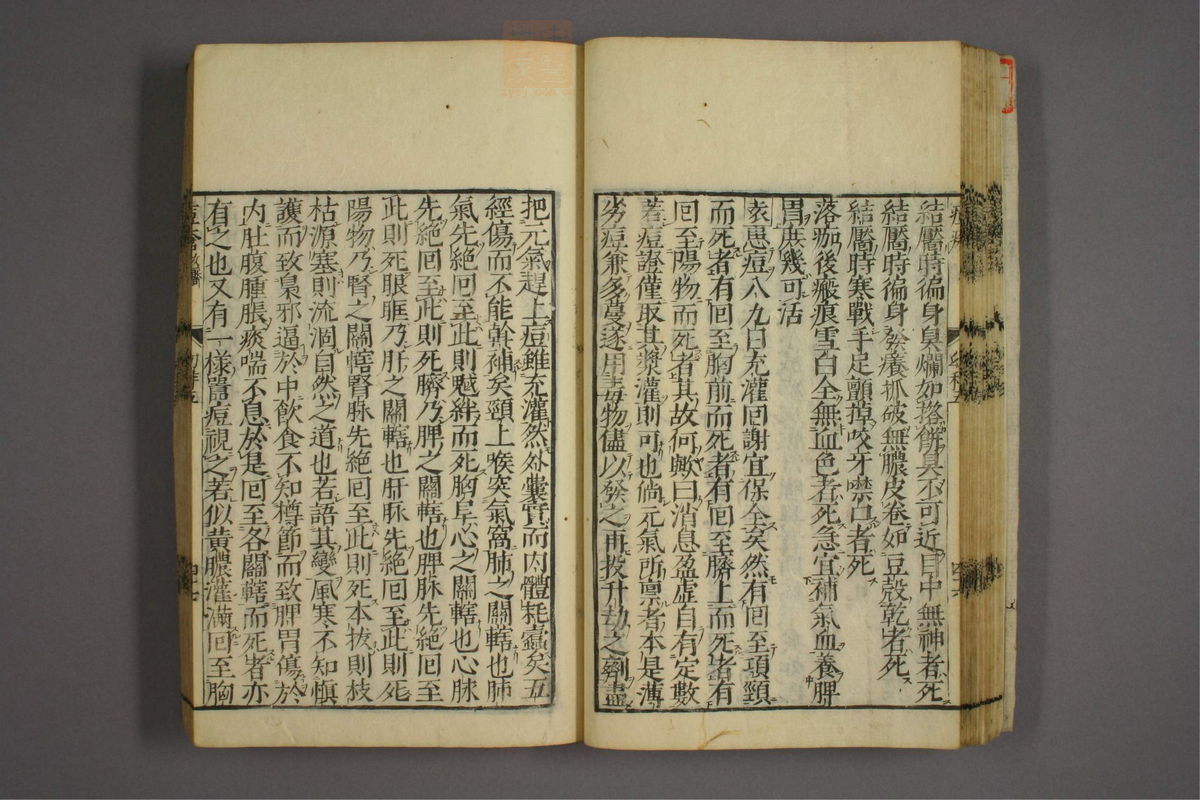 結靨時徧身臭爛如搭餅臭不可近目中無神者死
結靨時徧身發癢抓破無膿皮卷如豆殼乾者死
結靨時寒戰手足顫掉咬牙噤口者死
落痂後瘢痕雪白全無血色者死急宜補氣血養脾
胃庶幾可活
陔思痘八九日充灌回謝宜保全矣然有回至項頸
而死者有回至胸前而死者有回至臍上而死者有
回至陽物而死者其故何歟曰消息盈虛自有定數
若痘證僅取其漿灌則可也倘元氣所禀者本是薄
劣痘兼多蔓遂用毒物儘以發之再投升劫之劑盡
把元氣趕上痘雖充灌然外囊實而内體耗蠹矣五
經傷而不能斡補矣頸上喉突氣窩肺之關轄也肺
氣先絕回至此則䞃絆而死胸阜心之關轄也心脉
先絕回至此則死臍乃脾之關轄也脾脉先絕回至
此則死眼眶乃肝之關轄也肝脉先絕回至此則死
陽物乃腎之關轄腎脉先絕回至此則死本拔則枝
枯源塞則流涸自然之道也若語其變風寒不知慎
護而致梟邪逼於中飲食不知樽節而致脾胃傷於
内肚腹腫脹痰喘不息於是回至各關轄而死者亦
有之也又有一様𦤀痘視之若似黃膿灌滿回至胸